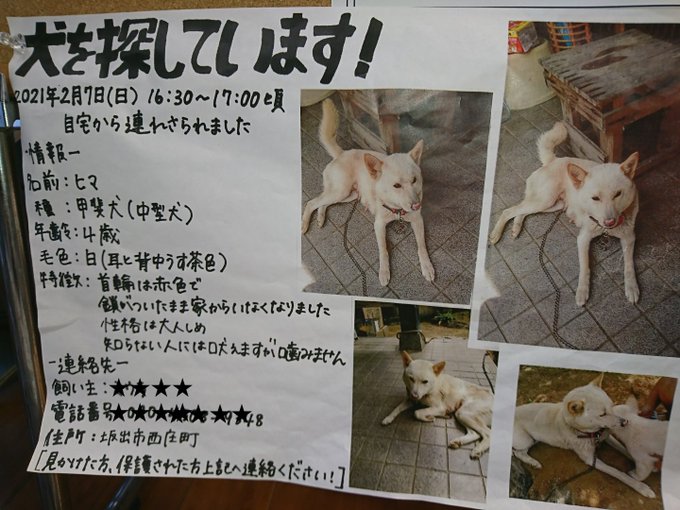 犬を探しています!
2021年2月7日(日) 16:30~17:00頃
自宅から連れさられました
-情報-
名前:ヒマ
種:甲斐犬(中型犬)
年齢:4歳
毛色:白(耳と背中うす茶色)
特徴:首輪は赤色で
鎖がついたまま家からいなくなりました
性格は大人しめ
知らない人には吠えますが噛みません
-連絡先-
飼い主:★★★★
電話番号
住所:坂出市西庄町
[見かけた方、保護された方上記へ連絡ください!]